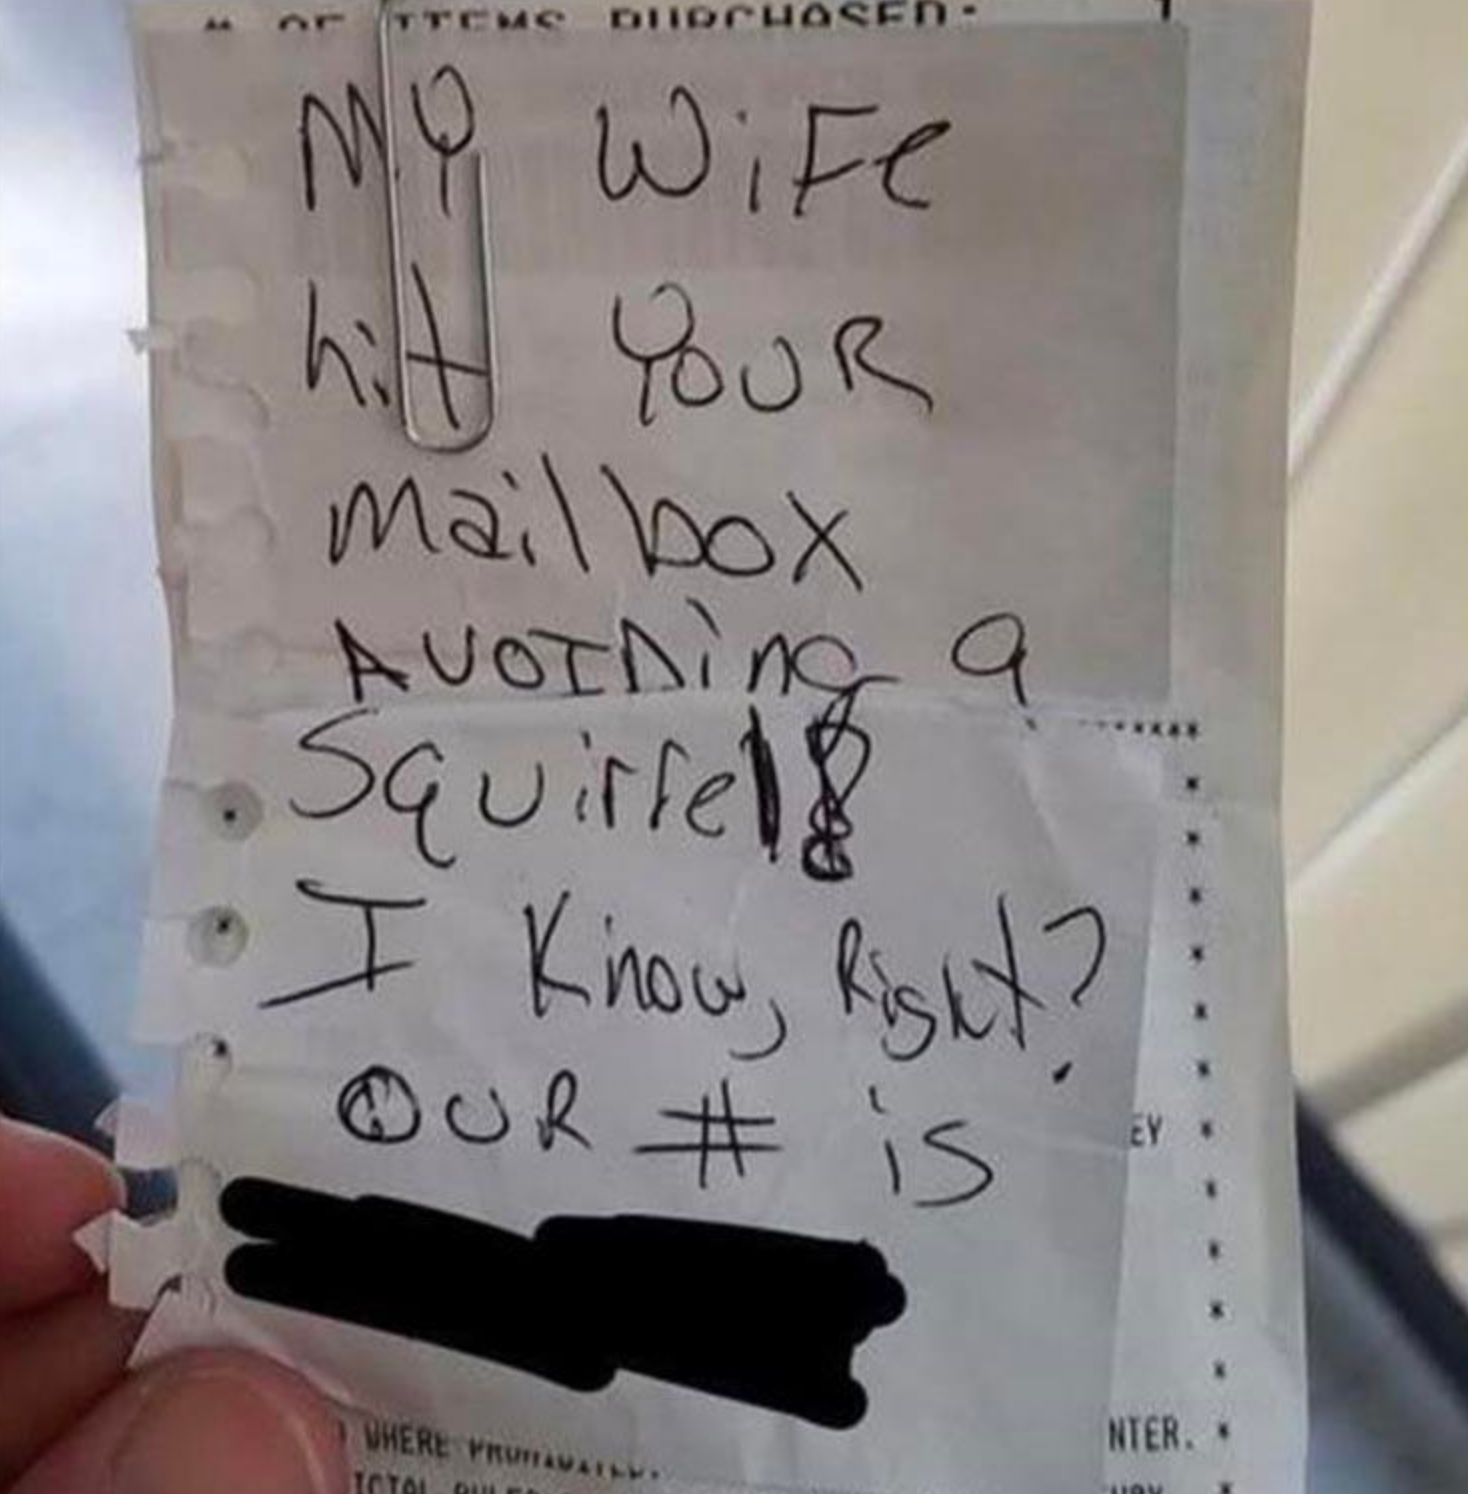 # OF ITEMS PURCHASED: 1
MY WiFe
hit YOUR
mailbox
AVOIDing a
Squirrel
I Know, Right?
OUR # is
EY
WHERE PROHIBITED.
NTER.